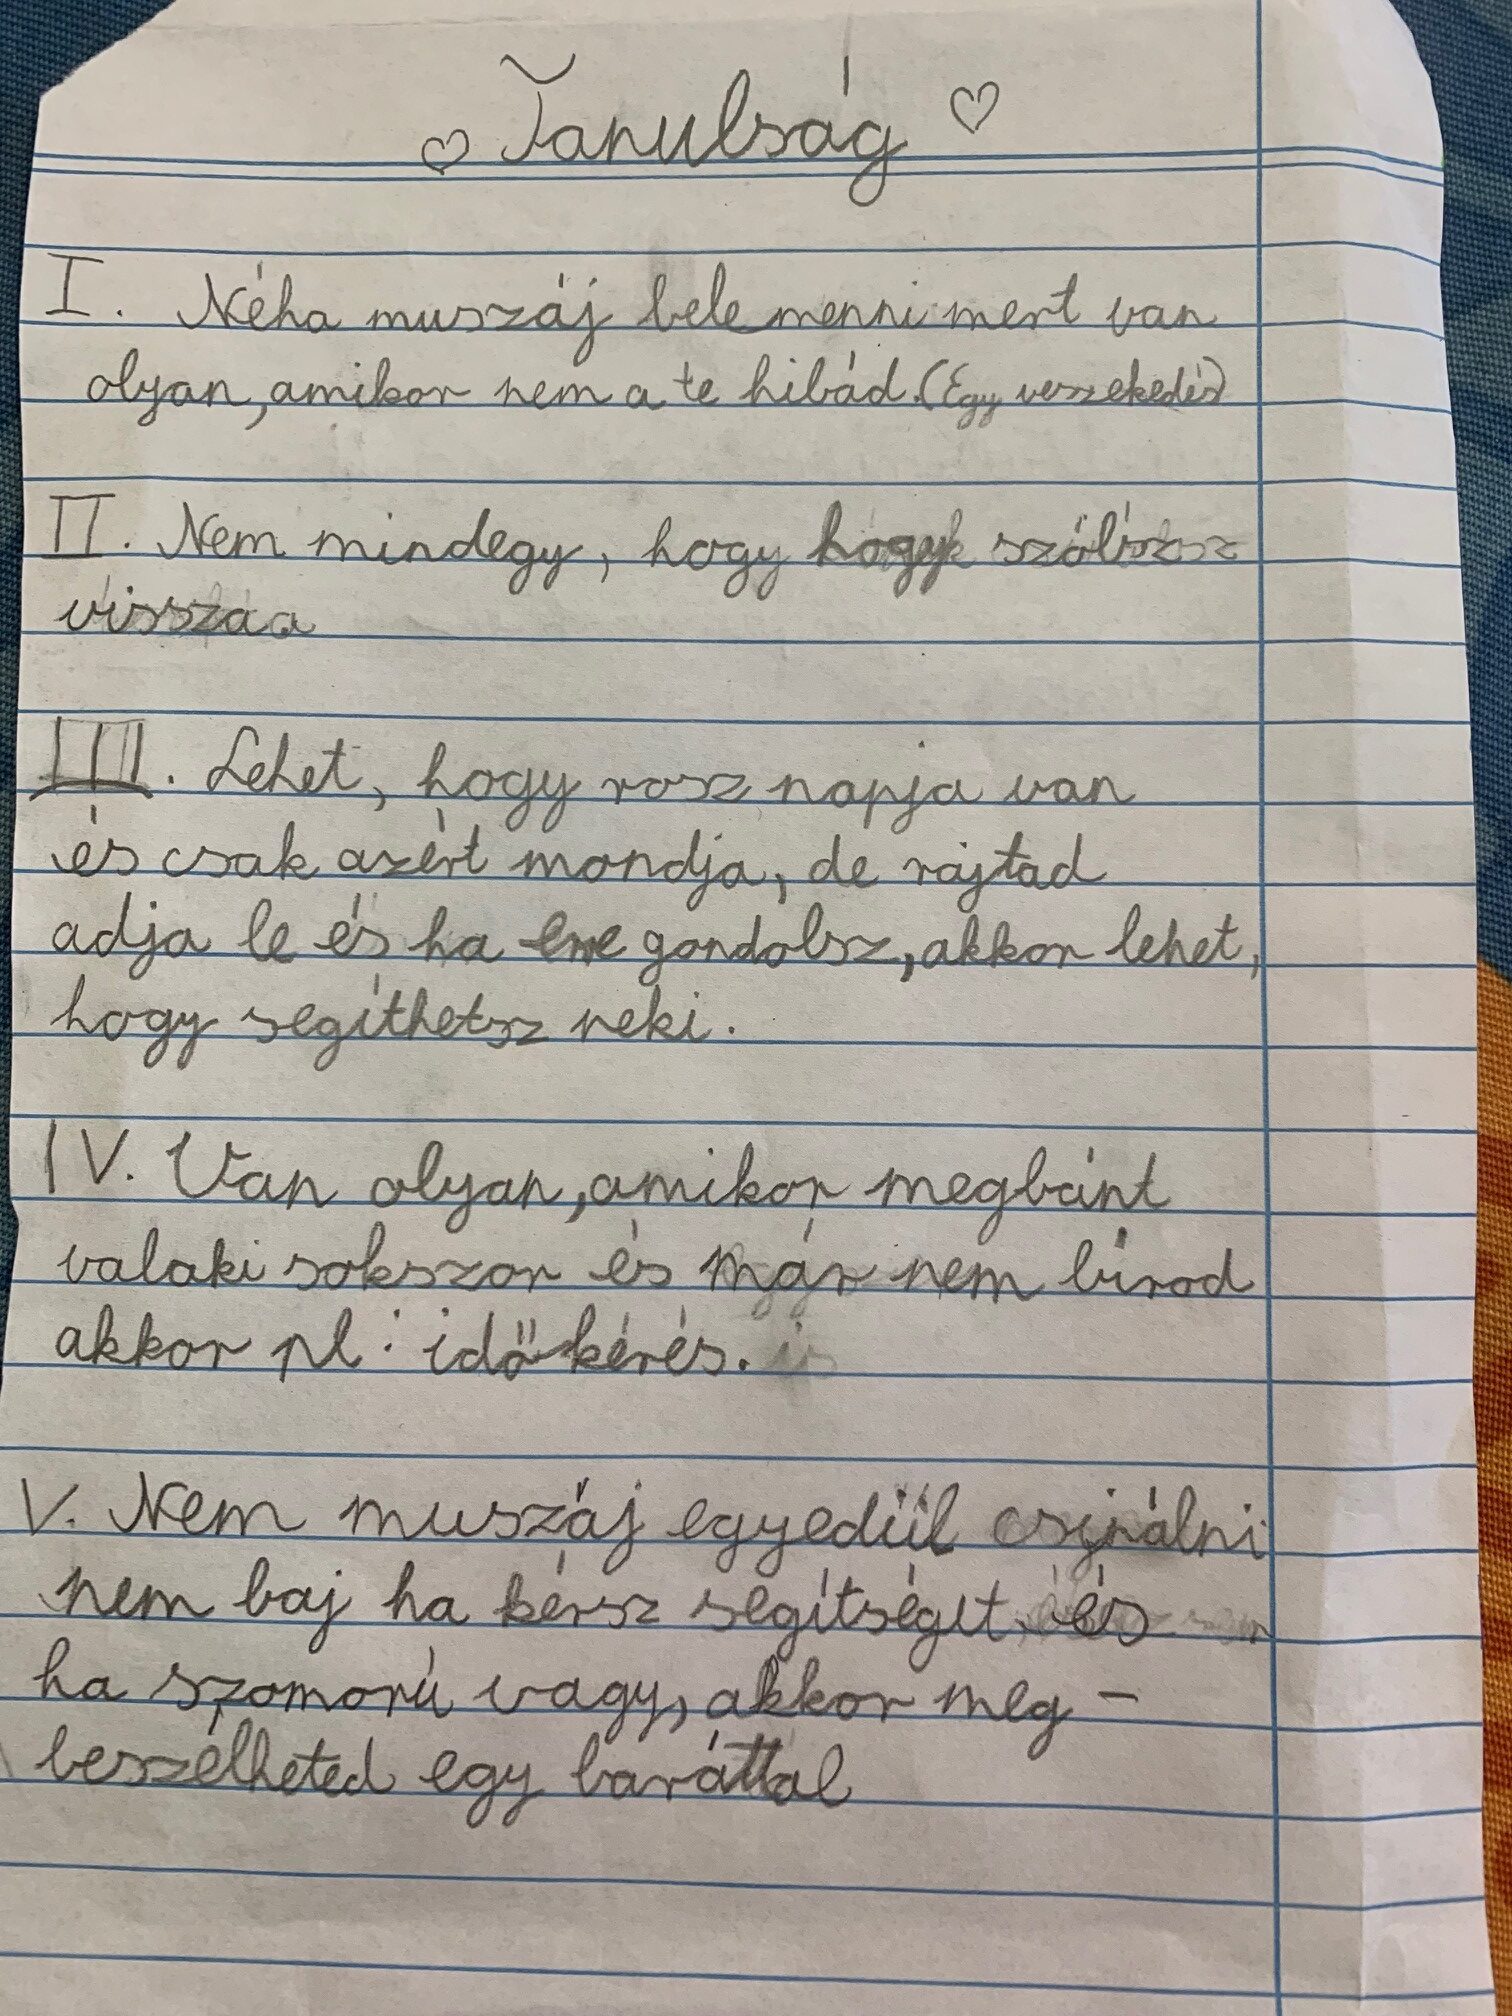 ♡ Tanulság ♡
I. Néha muszáj bele menni mert van
olyan, amikor nem a te hibád. (Egy veszekedés)
II. Nem mindegy, hogy hogy szólsz
vissza
III. Lehet, hogy rosz napja van
és csak azért mondja, de rajtad
adja le és ha erre gondolsz, akkor lehet,
hogy segíthetsz neki.
IV. Van olyan, amikor megbánt
valaki sokszor és már nem bírod
akkor pl: időkérés.
V. Nem muszáj egyedül csinálni
nem baj ha kérsz segítséget, és
ha szomorú vagy, akkor meg-
beszélheted egy baráttal